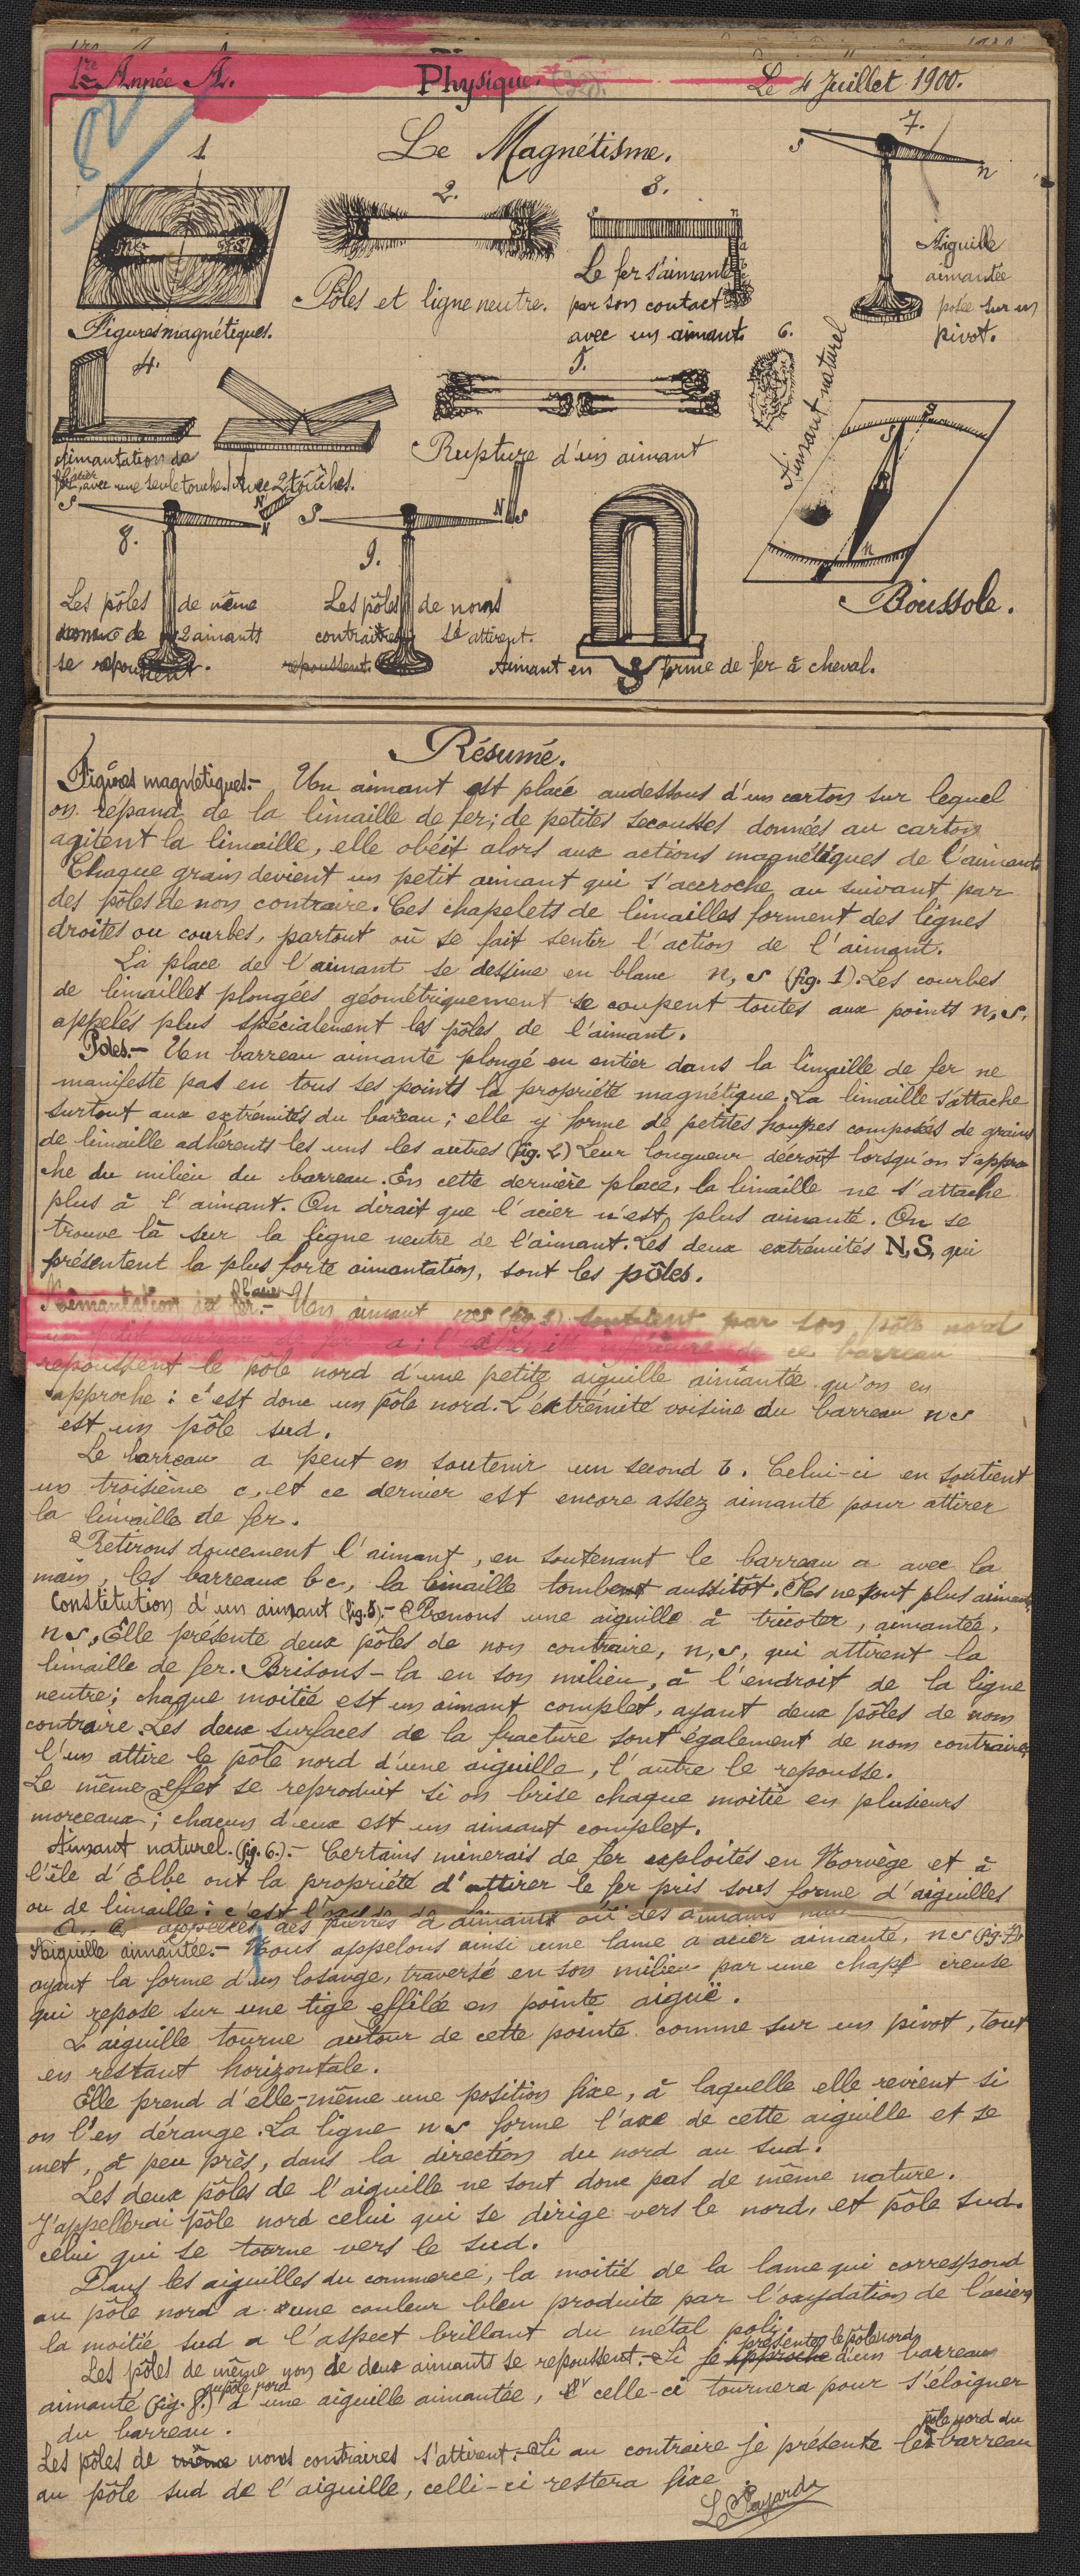 1re Année A.
Physique.
Le 4 Juillet 1900.
Le Magnétisme.
1.
Figures magnétiques.
2.
Pôles et ligne neutre.
3.
s n
a
b
Le fer s'aimante
par son contact
avec un aimant.
7.
s n
Aiguille
aimantée
posée sur un
pivot.
4.
Aimantation de
l'acier avec une seule touche.
Avec 2 touches.
5.
Rupture d'un aimant
6.
Aimant naturel
S
S
n
Boussole.
S N
N
8.
Les pôles de même
nom de 2 aimants
se repoussent.
S N S
9.
Les pôles de noms
contraires s'attirent.
repoussent.
Aimant en forme de fer à cheval.
Résumé.
Figures magnétiques.- Un aimant est placé audessous d'un carton sur lequel
on répand de la limaille de fer; de petites secousses données au carton
agitent la limaille, elle obéit alors aux actions magnétiques de l'aimant.
Chaque grain devient un petit aimant qui s'accroche au suivant par
des pôles de nom contraire. Ces chapelets de limailles forment des lignes
droites ou courbes, partout où se fait sentir l'action de l'aimant.
La place de l'aimant se dessine en blanc n, s (fig. 1). Les courbes
de limailles plongées géométriquement se coupent toutes aux points n, s,
appelés plus spécialement les pôles de l'aimant.
Poles.- Un barreau aimanté plongé en entier dans la limaille de fer ne
manifeste pas en tous ses points la propriété magnétique. La limaille s'attache
surtout aux extrémités du bareau; elle y forme de petites houppes composés de grains
de limaille adhérents les uns les autres (fig. 2) Leur longueur décroît lorsqu'on s'appro
che du milieu du barreau. En cette dernière place, la limaille ne s'attache
plus à l'aimant. On dirait que l'acier n'est plus aimanté. On se
trouve là sur la ligne neutre de l'aimant. Les deux extrémités N, S, qui
présentent la plus forte aimantation, sont les pôles.
Aimantation de l'acier fer.- Un aimant ns (fig 3) soutient par son pôle nord
de ce barreau
repoussent le pôle nord d'une petite aiguille aimantée qu'on en
approche : c'est donc un pôle nord. L'extrémité voisine du barreau ns
est un pôle sud.
Le barreau a peut en soutenir un second b. Celui-ci en soutient
un troisième c, et ce dernier est encore assez aimanté pour attirer
la limaille de fer.
Retirons doucement l'aimant, en soutenant le barreau a avec la
main, les barreaux b c, la limaille tombent aussitôt. Ils ne sont plus aimantés
Constitution d'un aimant (fig. 5).- Prenons une aiguille à tricoter, aimantée,
ns. Elle présente deux pôles de nom contraire, n, s, qui attirent la
limaille de fer. Brisons-la en son milieu, à l'endroit de la ligne
neutre; chaque moitié est un aimant complet, ayant deux pôles de nom
contraire. Les deux surfaces de la fracture sont également de nom contraire,
l'un attire le pôle nord d'une aiguille, l'autre le repousse.
Le même effet se reproduit si on brise chaque moitié en plusieurs
morceaux; chacun d'eux est un aimant complet.
Aimant naturel. (fig. 6.).- Certains minerais de fer exploités en Norvège et à
l'île d'Elbe ont la propriété d'attirer le fer pris sous forme d'aiguilles
ou de limaille : c'est
appelées des pierres d'aimant ou des aimants
Aiguille aimantée.- Nous appelons ainsi une lame d'acier aimanté, ns (fig. 7),
ayant la forme d'un losange, traversé en son milieu par une chape creuse
qui repose sur une tige effilée en pointe aiguë.
L'aiguille tourne autour de cette pointe comme sur un pivot, tout
en restant horizontale.
Elle prend d'elle-même une position fixe, à laquelle elle revient si
on l'en dérange. La ligne ns forme l'axe de cette aiguille et se
met, à peu près, dans la direction du nord au sud.
Les deux pôles de l'aiguille ne sont donc pas de même nature.
J'appellerai pôle nord celui qui se dirige vers le nord, et pôle sud
celui qui se tourne vers le sud.
Dans les aiguilles du commerce, la moitié de la lame qui correspond
au pôle nord a une couleur bleu produite par l'oxydation de l'acier,
la moitié sud a l'aspect brillant du métal poli.
Les pôles de même nom de deux aimants se repoussent.- Si je approche présentes le pôle nord d'un barreau
aimanté (fig. 8.) au pôle nord d'une aiguille aimantée, celle-ci tournera pour s'éloigner
du barreau.
Les pôles de même noms contraires s'attirent.- Si au contraire je présente le pôle nord du barreau
au pôle sud de l'aiguille, celli-ci restera fixe.